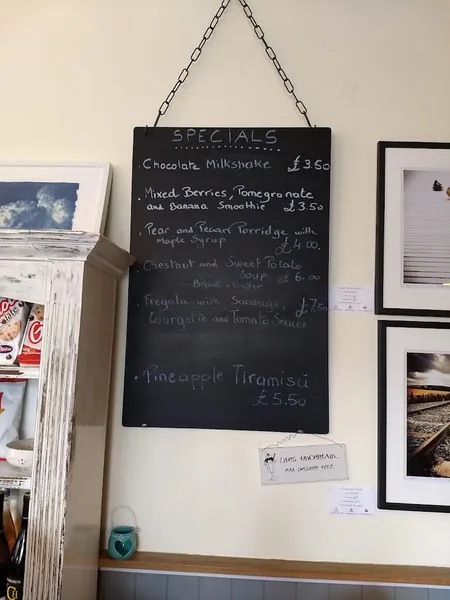 SPECIALS
. Chocolate Milkshake £3.50
. Mixed Berries, Pomegranate
and Banana Smoothie £3.50
. Pear and Pecan Porridge with
Maple Syrup £4.00.
. Chestnut and Sweet Potato
Soup £6.00
. Fregola with Sausage, £7.50
Courgette and Tomato Sauce
. Pineapple Tiramisú
£5.50
LIFE'S UNCERTAIN...
EAT DESSERT FIRST